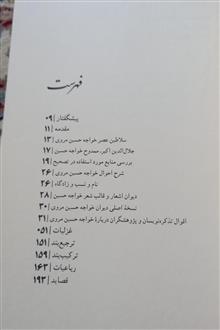 فهرست
پیشگفتار ۰۹
مقدمه ۱۱
سلاطین عصر خواجه حسین مروی ۱۳
جلال‌الدین اکبر، ممدوح خواجه حسین ۱۷
بررسی منابع مورد استفاده در تصحیح ۱۹
شرح احوال خواجه حسین مروی ۲۶
نام و نسب و زادگاه ۲۶
دیوان اشعار و قالب شعر خواجه حسین ۲۸
نسخهٔ اصلی دیوان خواجه حسین مروی ۳۰
اقوال تذکره‌نویسان و پژوهشگران دربارهٔ خواجه حسین مروی ۳۱
غزلیات ۰۵۱
ترجیع‌بند ۱۵۱
ترکیب‌بند ۱۵۹
رباعیات ۱۶۳
قصاید ۱۹۳